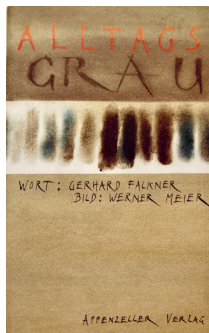 ALLTAGS
GRAU
WORT: GERHARD FALKNER
BILD: WERNER MEIER
APPENZELLER VERLAG